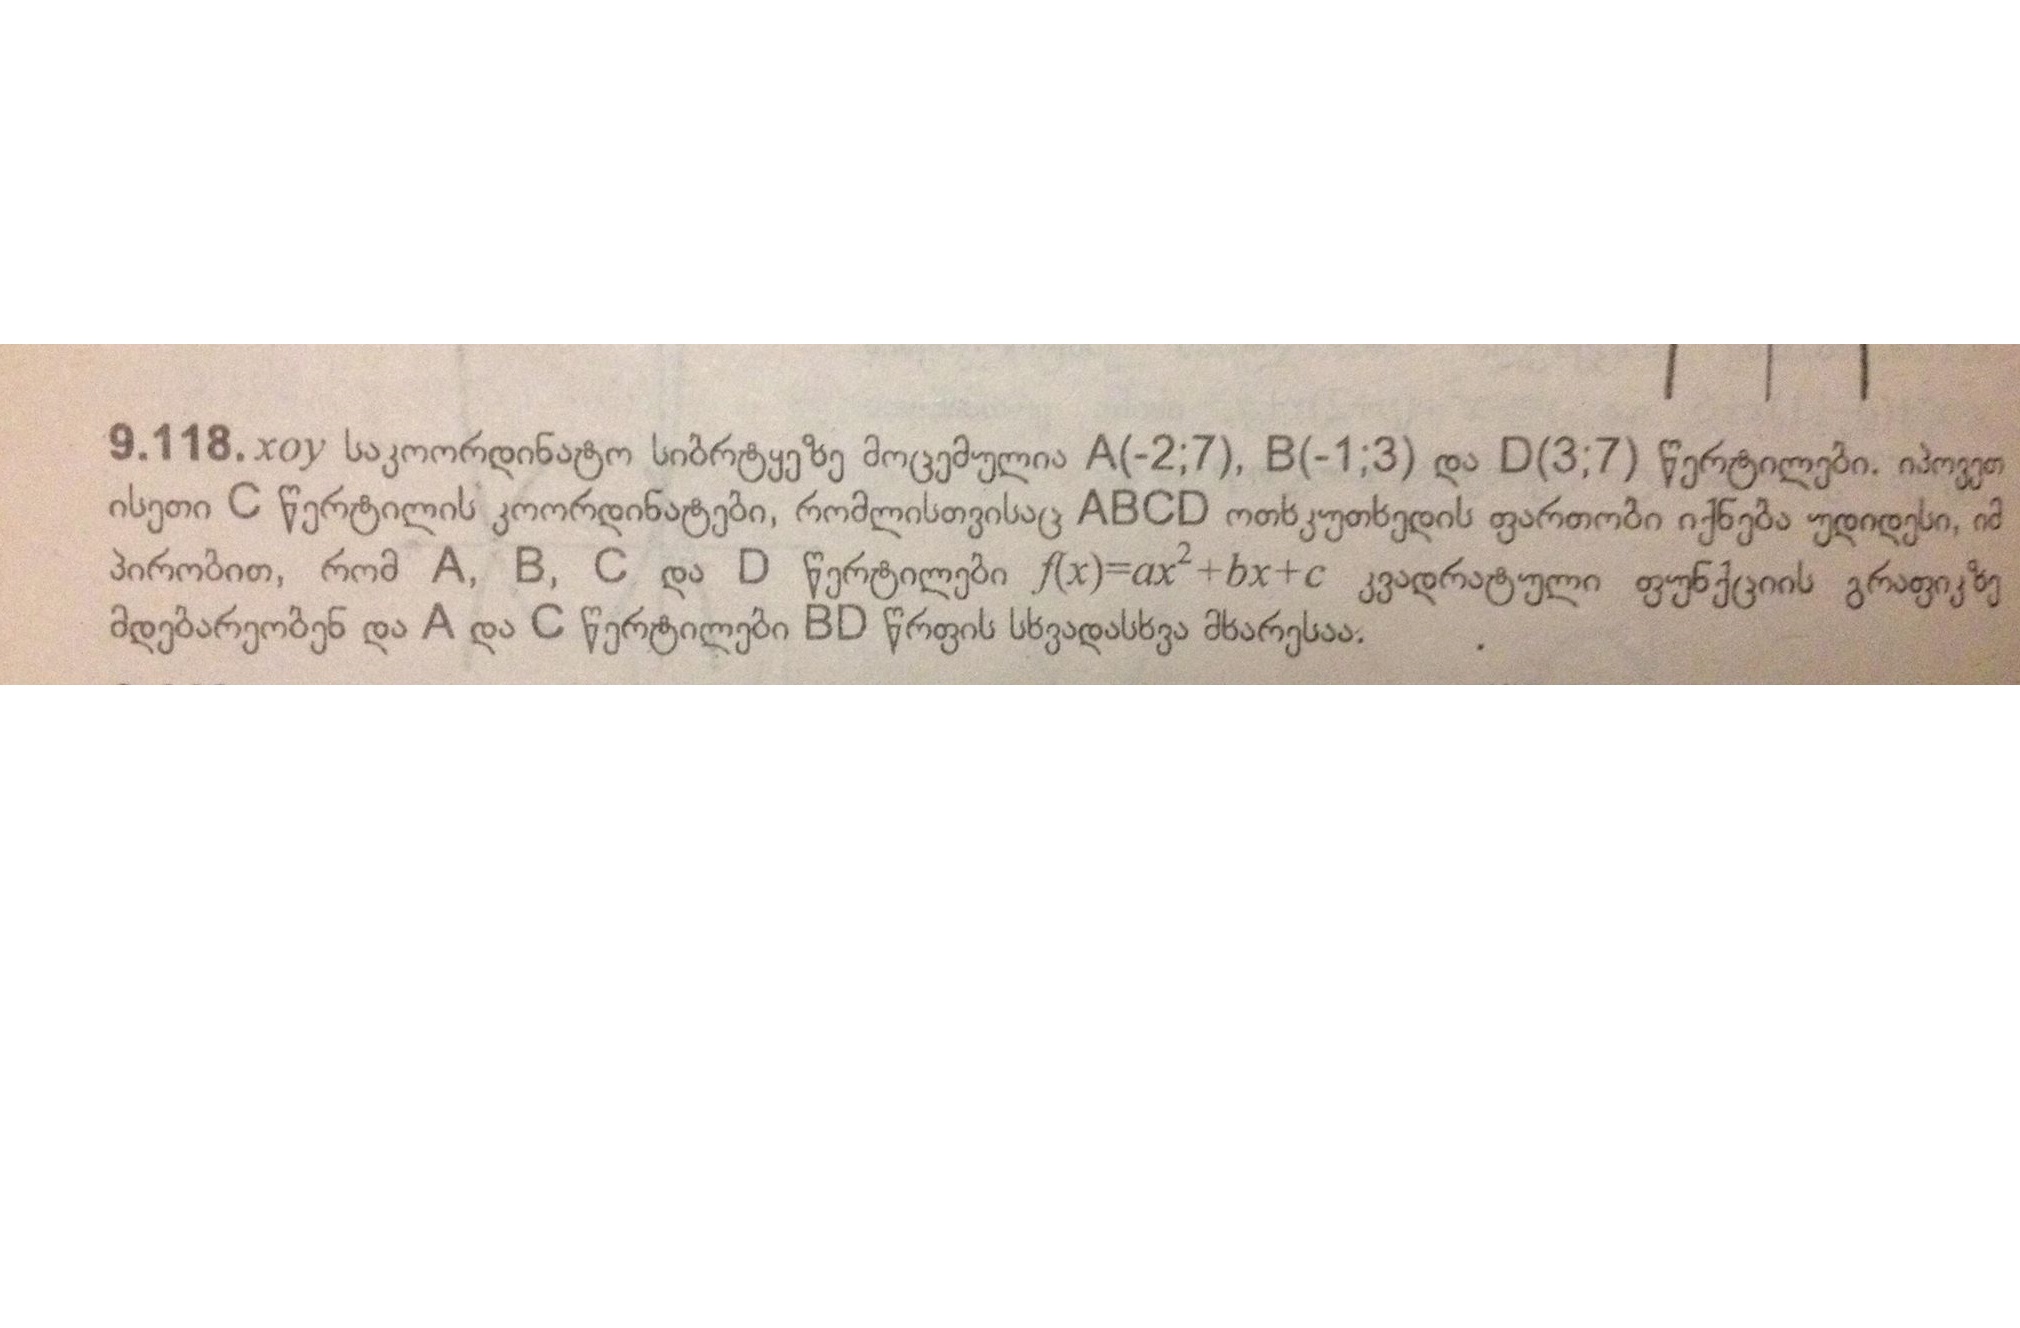 9.118. xoy საკოორდინატო სიბრტყეზე მოცემულია A(-2;7), B(-1;3) და D(3;7) წერტილები. იპოვეთ
ისეთი C წერტილის კოორდინატები, რომლისთვისაც ABCD ოთხკუთხედის ფართობი იქნება უდიდესი, იმ
პირობით, რომ A, B, C და D წერტილები f(x)=ax²+bx+c კვადრატული ფუნქციის გრაფიკზე
მდებარეობენ და A და C წერტილები BD წრფის სხვადასხვა მხარესაა.